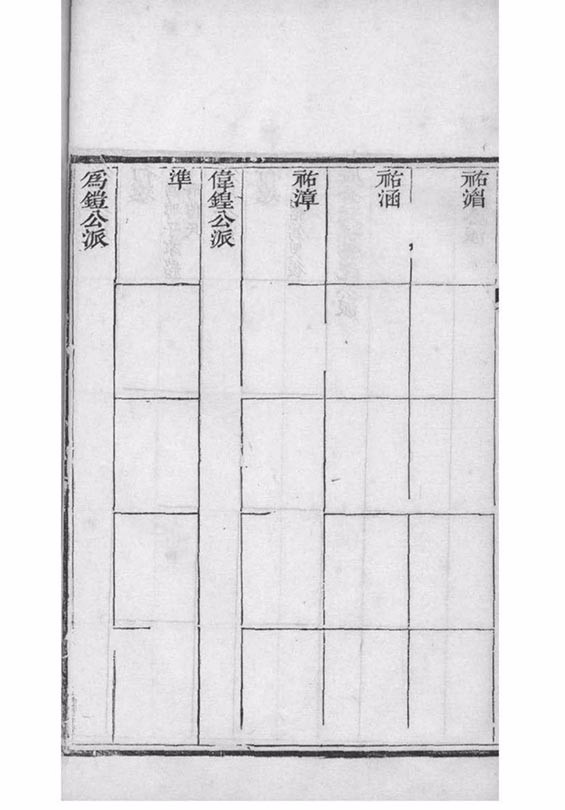 祐㵮
祐涵
祐漳
偉鍠公派
準
為鎧公派